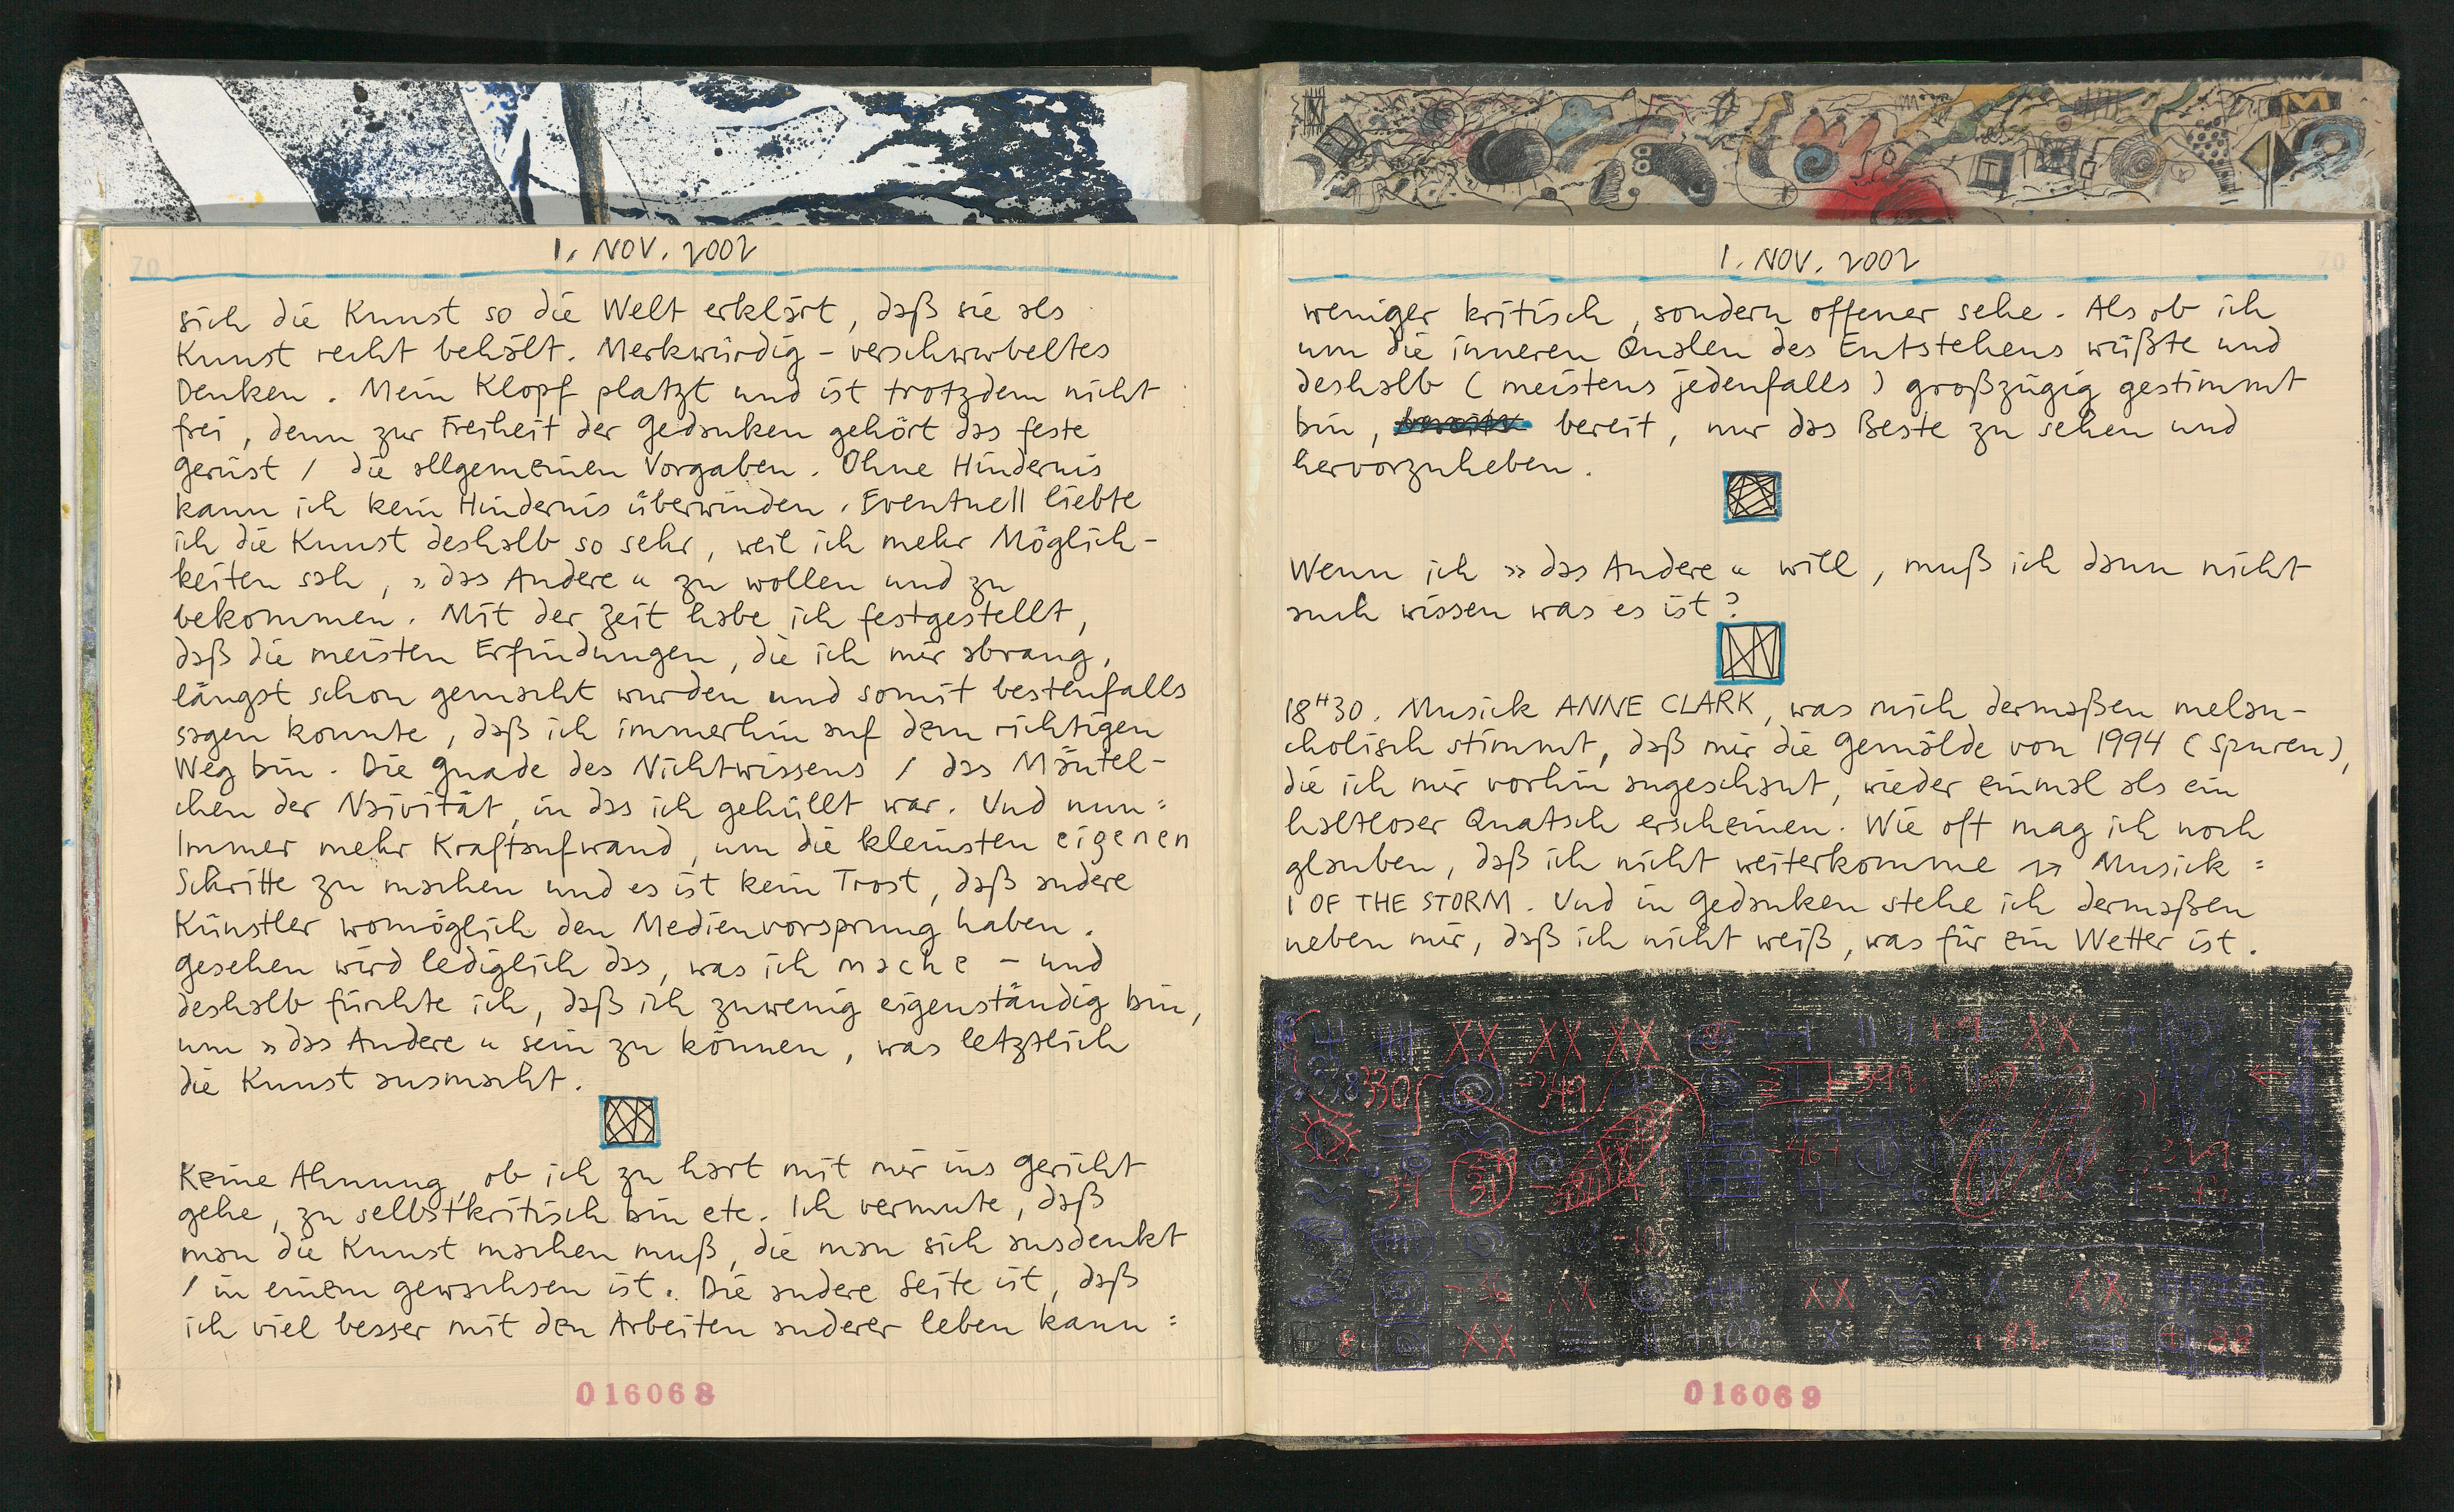 1. NOV. 2002
sich die Kunst so die Welt erklärt, daß sie als
Kunst recht behält. Merkwürdig - verschwurbeltes
Denken. Mein Klopf platzt und ist trotzdem nicht
frei, denn zur Freiheit der Gedanken gehört das feste
Gerüst / die allgemeinen Vorgaben. Ohne Hindernis
kann ich kein Hindernis überwinden. Eventuell liebte
ich die Kunst deshalb so sehr, weil ich mehr Möglich-
keiten sah, »das Andere« zu wollen und zu
bekommen. Mit der Zeit habe ich festgestellt,
daß die meisten Erfindungen, die ich mir abrang,
längst schon gemacht wurden und somit bestenfalls
sagen konnte, daß ich immerhin auf dem richtigen
Weg bin. Die Gnade des Nichtwissens / das Mäntel-
chen der Naivität, in das ich gehüllt war. Und nun:
Immer mehr Kraftaufwand, um die kleinsten eigenen
Schritte zu machen und es ist kein Trost, daß andere
Künstler womöglich den Medienvorsprung haben.
Gesehen wird lediglich das, was ich mache - und
deshalb fürchte ich, daß ich zuwenig eigenständig bin,
um »das Andere« sein zu können, was letztlich
die Kunst ausmacht.
Keine Ahnung, ob ich zu hart mit mir ins Gericht
gehe, zu selbstkritisch bin etc. Ich vermute, daß
man die Kunst machen muß, die man sich ausdenkt
/ in einem gewachsen ist. Die andere Seite ist, daß
ich viel besser mit den Arbeiten anderer leben kann:
016068
1. NOV. 2002
weniger kritisch, sondern offener sehe. Als ob ich
um die inneren Qualen des Entstehens wüßte und
deshalb (meistens jedenfalls) großzügig gestimmt
bin, bereit, nur das Beste zu sehen und
hervorzuheben.
Wenn ich »das Andere« will, muß ich dann nicht
auch wissen was es ist?
18H30. Musick ANNE CLARK, was mich dermaßen melan-
cholisch stimmt, daß mir die Gemälde von 1994 (Spuren),
die ich mir vorhin angeschaut, wieder einmal als ein
haltloser Quatsch erscheinen. Wie oft mag ich noch
glauben, daß ich nicht weiterkomme Musick:
I OF THE STORM. Und in Gedanken stehe ich dermaßen
neben mir, daß ich nicht weiß, was für ein Wetter ist.
XX XX XX XX
330 -349 -392
XX XX
8 XX 82 88
016069